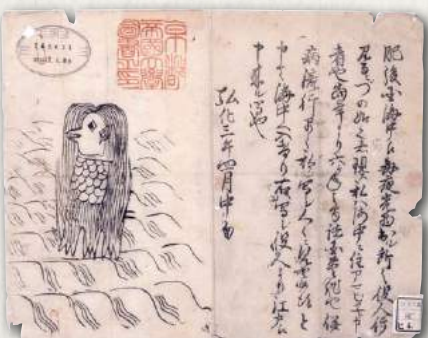 肥後国海中え毎夜光物出ル所之役人行
見るニづの如之者現ス私ハ海中ニ住アマビヱト申
者也当年より六ケ年之間諸国豊作也併
病流行早々私シ写シ人々ニ見せ候得と
申て海中へ入けり右ハ写シ役人より江戸え
申来ル写也
弘化三年四月中旬
京都
帝国大学
図書之印